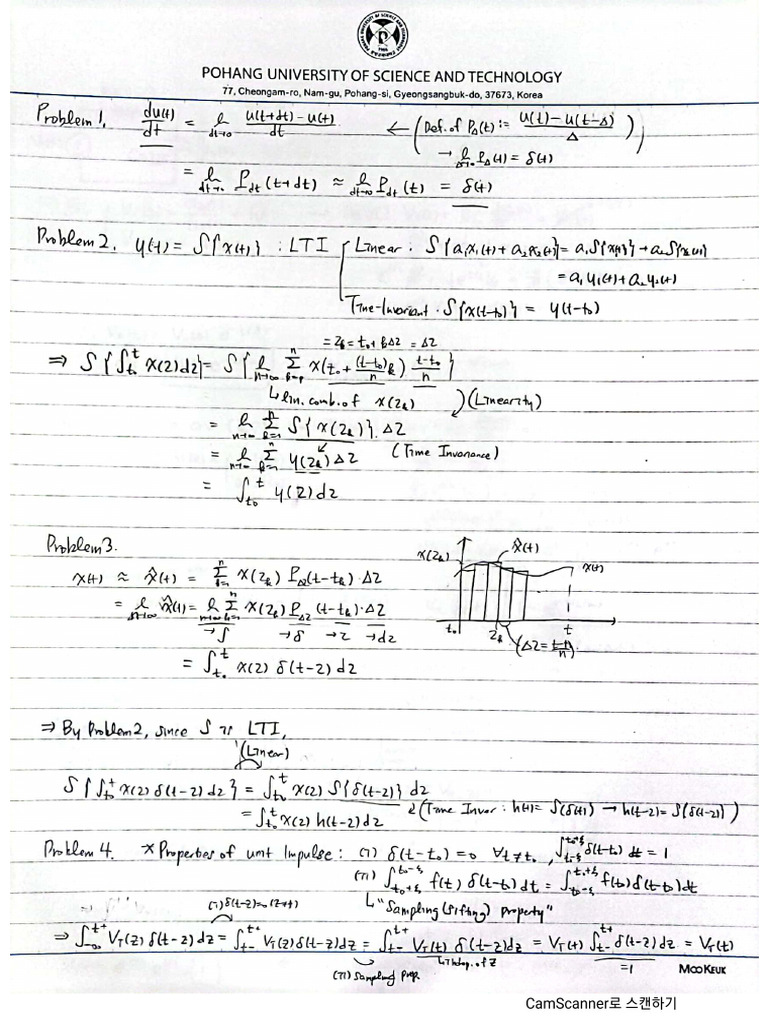 POHANG UNIVERSITY OF SCIENCE AND TECHNOLOGY
77, Cheongam-ro, Nam-gu, Pohang-si, Gyeongsangbuk-do, 37673, Korea
Problem 1. du(t)/dt = lim_{dt→0} (u(t+dt) - u(t))/dt ← (Def. of P_Δ(t) := (u(t) - u(t-Δ))/Δ
→ lim_{Δ→0} P_Δ(t) = δ(t))
= lim_{dt→0} P_dt(t+dt) ≈ lim_{dt→0} P_dt(t) = δ(t)
Problem 2. y(t) = S{x(t)} : LTI Linear : S{a₁x₁(t) + a₂x₂(t)} = a₁S{x₁(t)} + a₂S{x₂(t)}
= a₁y₁(t) + a₂y₂(t)
Time-Invariant : S{x(t-t₀)} = y(t-t₀)
= z_k = t₀ + kΔz = Δz
⇒ S{∫_{t₀}^{t} x(z)dz} = S{lim_{n→∞} Σ_{k=1}^{n} x(t₀ + (t-t₀)/n k) (t-t₀)/n}
↳ lin. comb. of x(z_k) (Linearity)
= lim_{n→∞} Σ_{k=1}^{n} S{x(z_k)}·Δz
= lim_{n→∞} Σ_{k=1}^{n} y(z_k)Δz (Time Invariance)
= ∫_{t₀}^{t} y(z)dz
Problem 3.
x(z_k) x̂(t) x(t)
x(t) ≈ x̂(t) = Σ_{k=1}^{n} x(z_k) P_Δz(t-t_k)·Δz
= lim_{n→∞} x̂(t) = lim_{n→∞} Σ_{k=1}^{n} x(z_k) P_Δz(t-t_k)·Δz
→∫ →δ →z →dz
t₀ z_k t
(Δz = (t-t₀)/n)
= ∫_{t₀}^{t} x(z) δ(t-z) dz
⇒ By Problem 2, since S is LTI,
(Linear)
S{∫_{t₀}^{t} x(z) δ(t-z) dz} = ∫_{t₀}^{t} x(z) S{δ(t-z)} dz
= ∫_{t₀}^{t} x(z) h(t-z) dz (Time Invar : h(t) = S{δ(t)} → h(t-z) = S{δ(t-z)})
Problem 4. * Properties of unit Impulse : (i) δ(t-t₀) = 0 ∀t≠t₀, ∫_{t₀-ξ}^{t₀+ξ} δ(t-t₀) dt = 1
(ii) ∫_{t₀+ξ}^{t₀-ξ} f(t) δ(t-t₀) dt = ∫_{t₀-ξ}^{t₀+ξ} f(t₀) δ(t-t₀) dt
↳ "Sampling (sifting) property"
(i) δ(t-z)=0 (z≠t)
⇒ ∫_{-∞}^{t+} V_T(z) δ(t-z) dz = ∫_{t-}^{t+} V_T(z) δ(t-z) dz = ∫_{t-}^{t+} V_T(t) δ(t-z) dz = V_T(t) ∫_{t-}^{t+} δ(t-z) dz = V_T(t)
(ii) Sampling Prop. ↳ indep. of z =1
MOOKEUK
CamScanner로 스캔하기